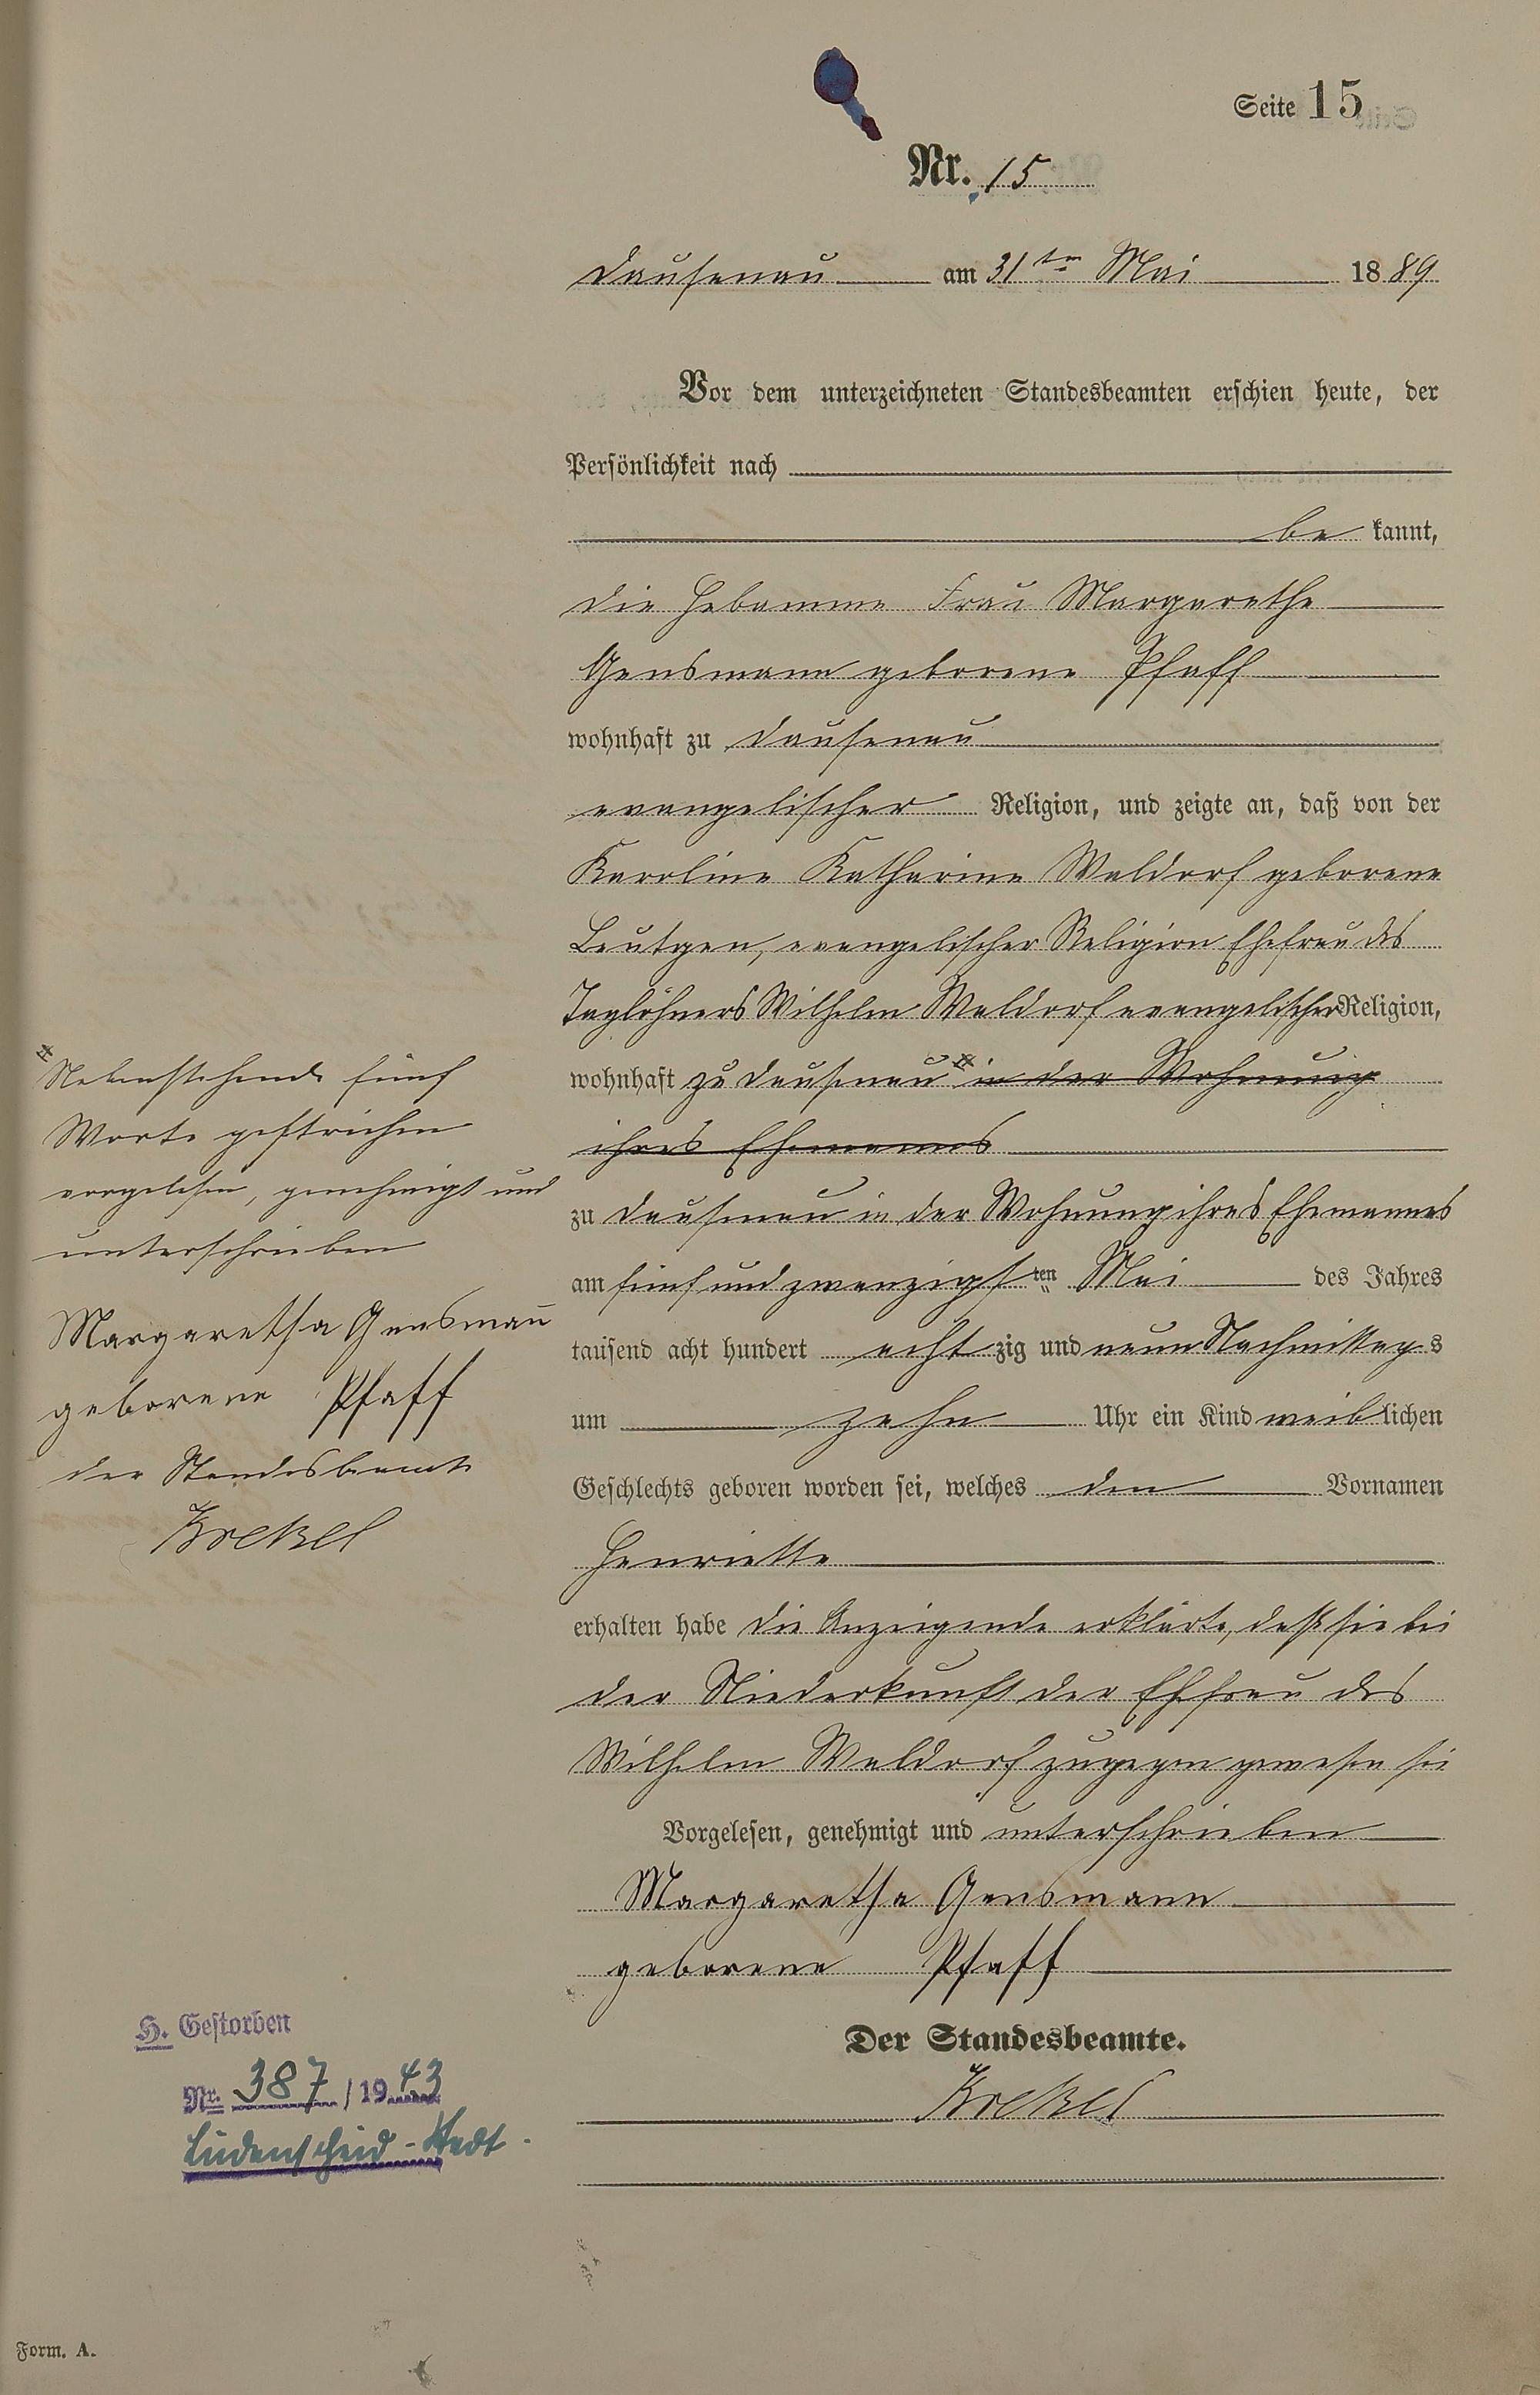 Seite 15
Nr. 15
Dausenau am 31ten Mai 1889
Vor dem unterzeichneten Standesbeamten erschien heute, der
Persönlichkeit nach
be kannt,
die Hebamme Frau Margarethe
Gensmann geborene Pfaff
wohnhaft zu Dausenau
evangelischer Religion, und zeigte an, daß von der
Karoline Katharine Waldorf geborene
Leutgen, evangelischer Religion Ehefrau des
Taglöhners Wilhelm Waldorf evangelischer Religion,
wohnhaft zu Dausenau in der Wohnung
ihres Ehemannes
zu Dausenau in der Wohnung ihres Ehemannes
am fünf und zwanzigsten Mai des Jahres
tausend acht hundert acht zig und neun Nachmittags
um zehn Uhr ein Kind weiblichen
Geschlechts geboren worden sei, welches den Vornamen
Henriette
erhalten habe Die Anzeigende erklärte, daß sie bei
der Niederkunft der Ehefrau des
Wilhelm Waldorf zugegen gewesen sei
Vorgelesen, genehmigt und unterschrieben
Margaretha Gensmann
geborene Pfaff
Der Standesbeamte.
Krekel
Nebenstehende fünf
Worte gestrichen
vorgelesen, genehmigt und
unterschrieben
Margaretha Gensmann
geborene Pfaff
der Standesbeamte
Krekel
H. Gestorben
Nr. 387/1943
Lüdenscheid-Stadt.
Form. A.